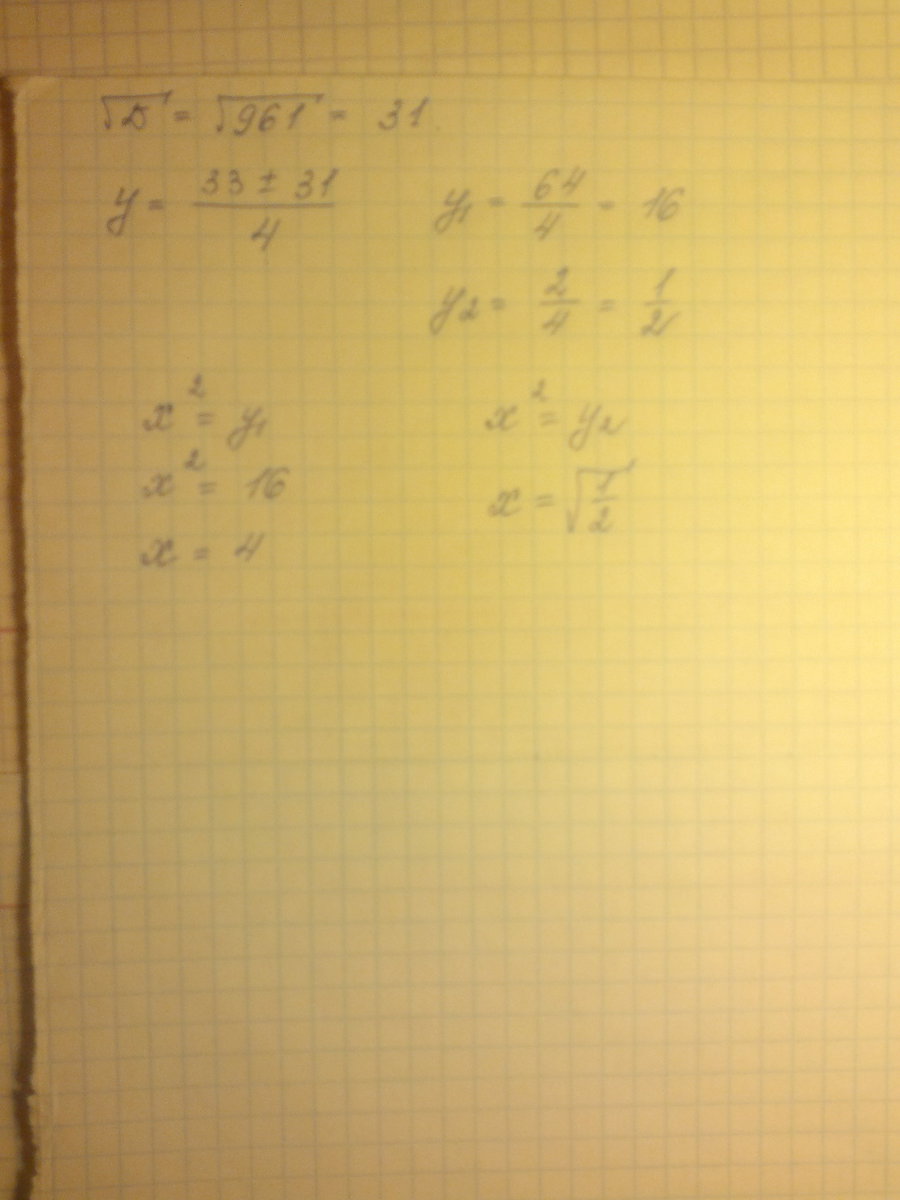 √D = √961 = 31.
y = (33 ± 31)/4 y₁ = 64/4 = 16
y₂ = 2/4 = 1/2
x² = y₁ x² = y₂
x² = 16 x = √(1/2)
x = 4